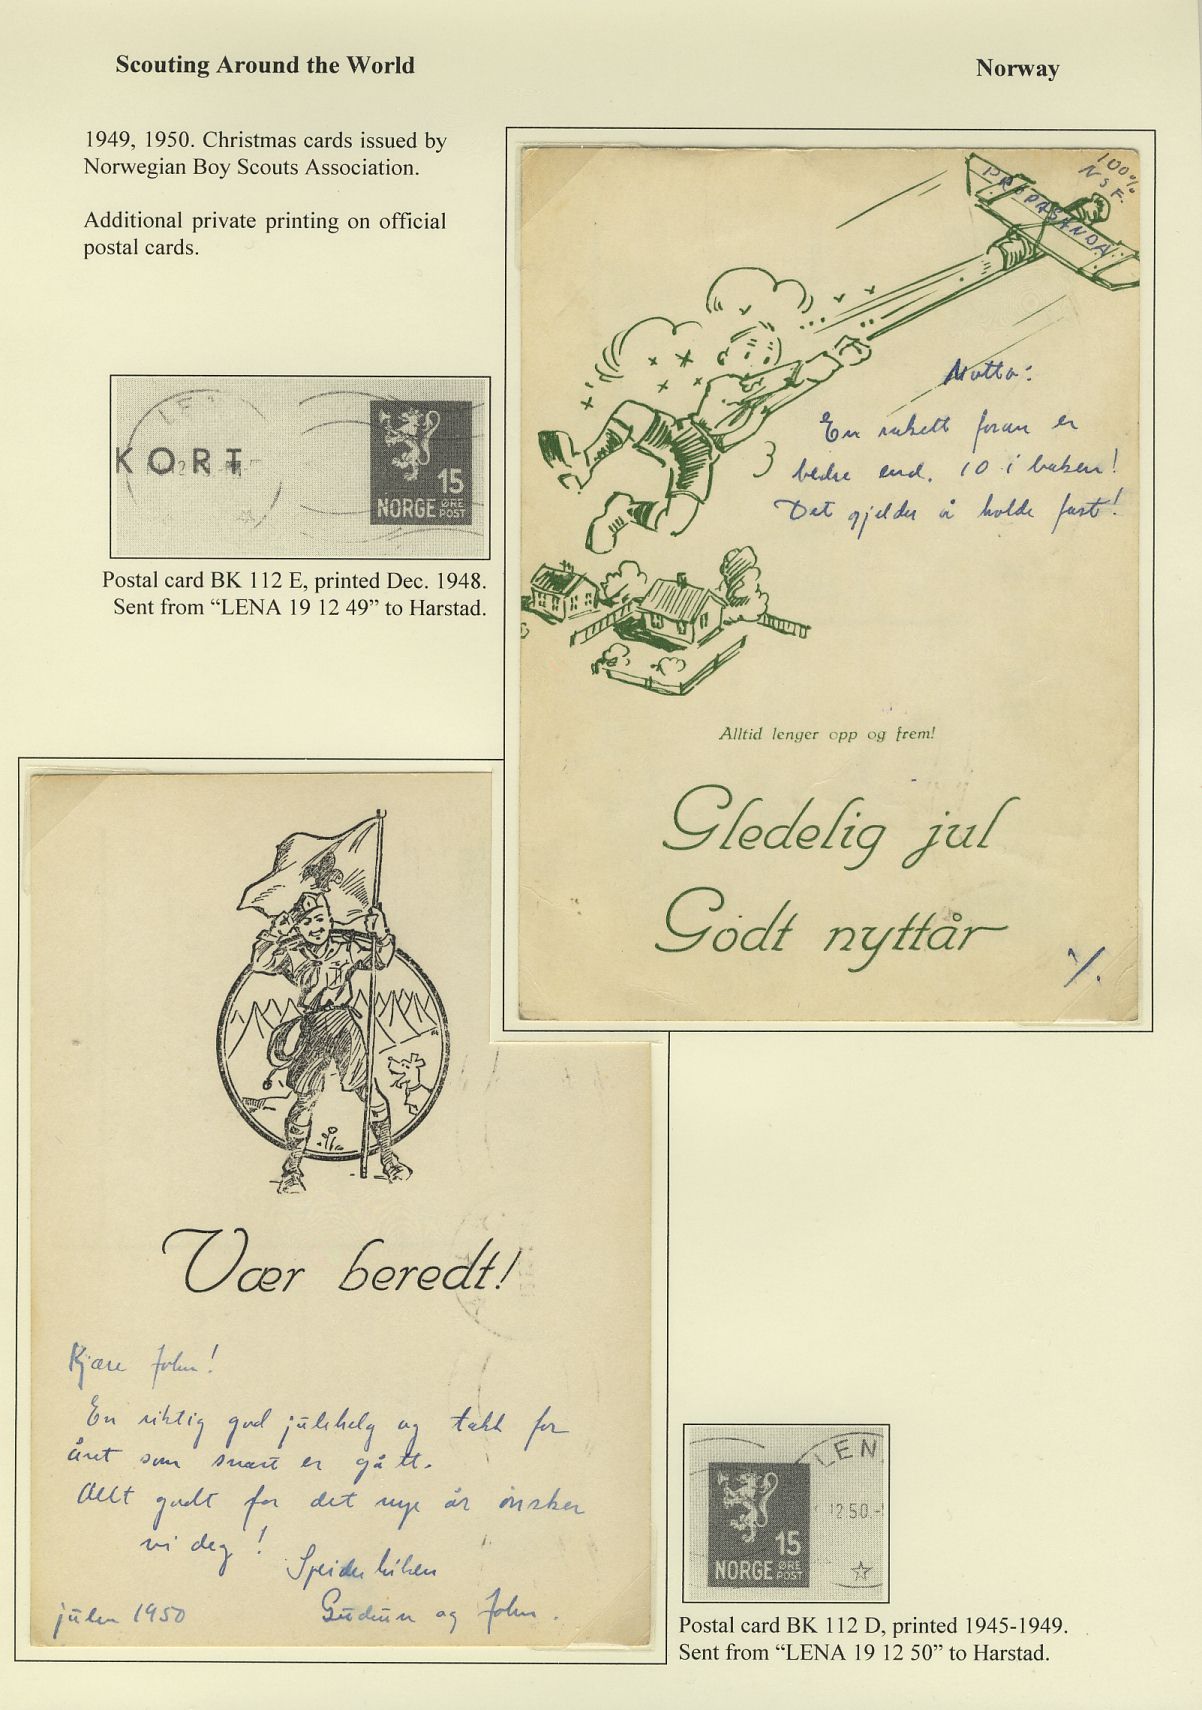 Scouting Around the World
Norway
1949, 1950. Christmas cards issued by
Norwegian Boy Scouts Association.
Additional private printing on official
postal cards.
100%
NSF.
PROPAGANDA
Motto:
En rakett foran er
bedre end. 10 i baken!
Det gjelder å holde fast!
Alltid lenger opp og frem!
Gledelig jul
Godt nyttår
KORT
15
NORGE ØRE
POST
Postal card BK 112 E, printed Dec. 1948.
Sent from “LENA 19 12 49” to Harstad.
Vær beredt!
Kjære John!
En riktig god julehelg og takk for
året som snart er gått.
Allt godt for det nye år ønsker
vi deg!
Speiderhilsen
julen 1950
Gudrun og John.
LEN
12 50.-
15
NORGE ØRE
POST
Postal card BK 112 D, printed 1945-1949.
Sent from “LENA 19 12 50” to Harstad.